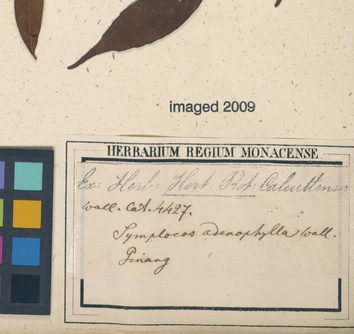 imaged 2009
HERBARIUM REGIUM MONACENSE.
Ex: Herb: Hort. Bot: Calcuttensis
Wall. Cat. 4427.
Symplocos adenophylla Wall.
Pinang